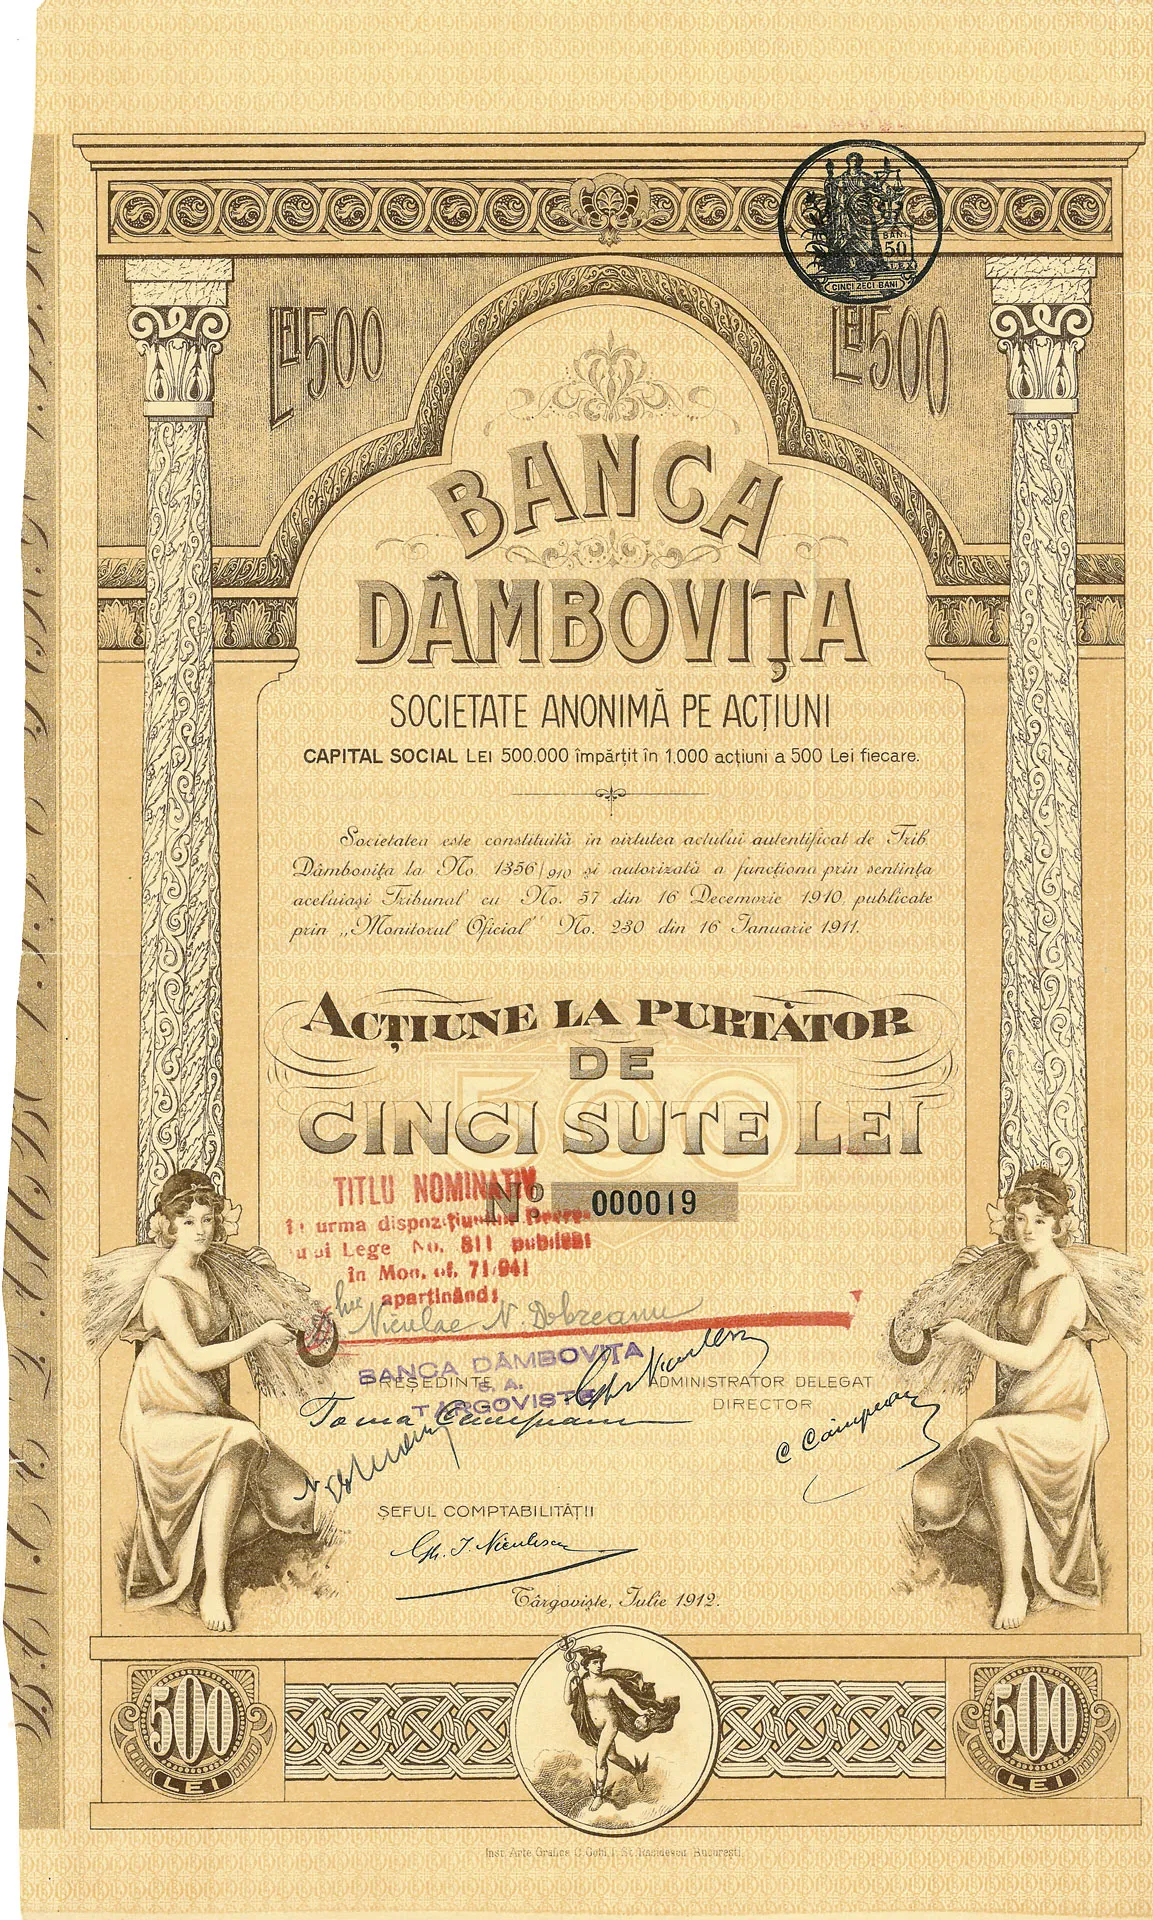 BANI
50
CINCI ZECI BANI
LEI 500
LEI 500
BANCA
DÂMBOVIȚA
SOCIETATE ANONIMĂ PE ACȚIUNI
CAPITAL SOCIAL LEI 500.000 împărțit în 1.000 acțiuni a 500 Lei fiecare.
Societatea este constituită în virtutea actului autentificat de Trib
Dâmbovița la No. 1356/910 și autorizată a funcționa prin sentința
aceluiași Tribunal cu No. 57 din 16 Decemvrie 1910 publicate
prin „Monitorul Oficial" No. 230 din 16 Ianuarie 1911.
ACȚIUNE LA PURTĂTOR
DE
500
CINCI SUTE LEI
TITLU NOMINATIV
No 000019
urma dispozițiunilor
Lege No. 811 publicat
în Mon. of. 71/941
aparținând:
lui Niculae N. Dobreanu
BANCA DÂMBOVIȚA
S. A.
TARGOVISTE
PREȘEDINTE
ADMINISTRATOR DELEGAT
DIRECTOR
Toma Câmpeanu
C Câmpeanu
ȘEFUL COMPTABILITĂȚII
Gh. I. Niculescu
Târgoviște, Iulie 1912.
500
LEI
500
LEI
Inst. Arte Grafice C. Göbl, I. St. Rasidescu București.